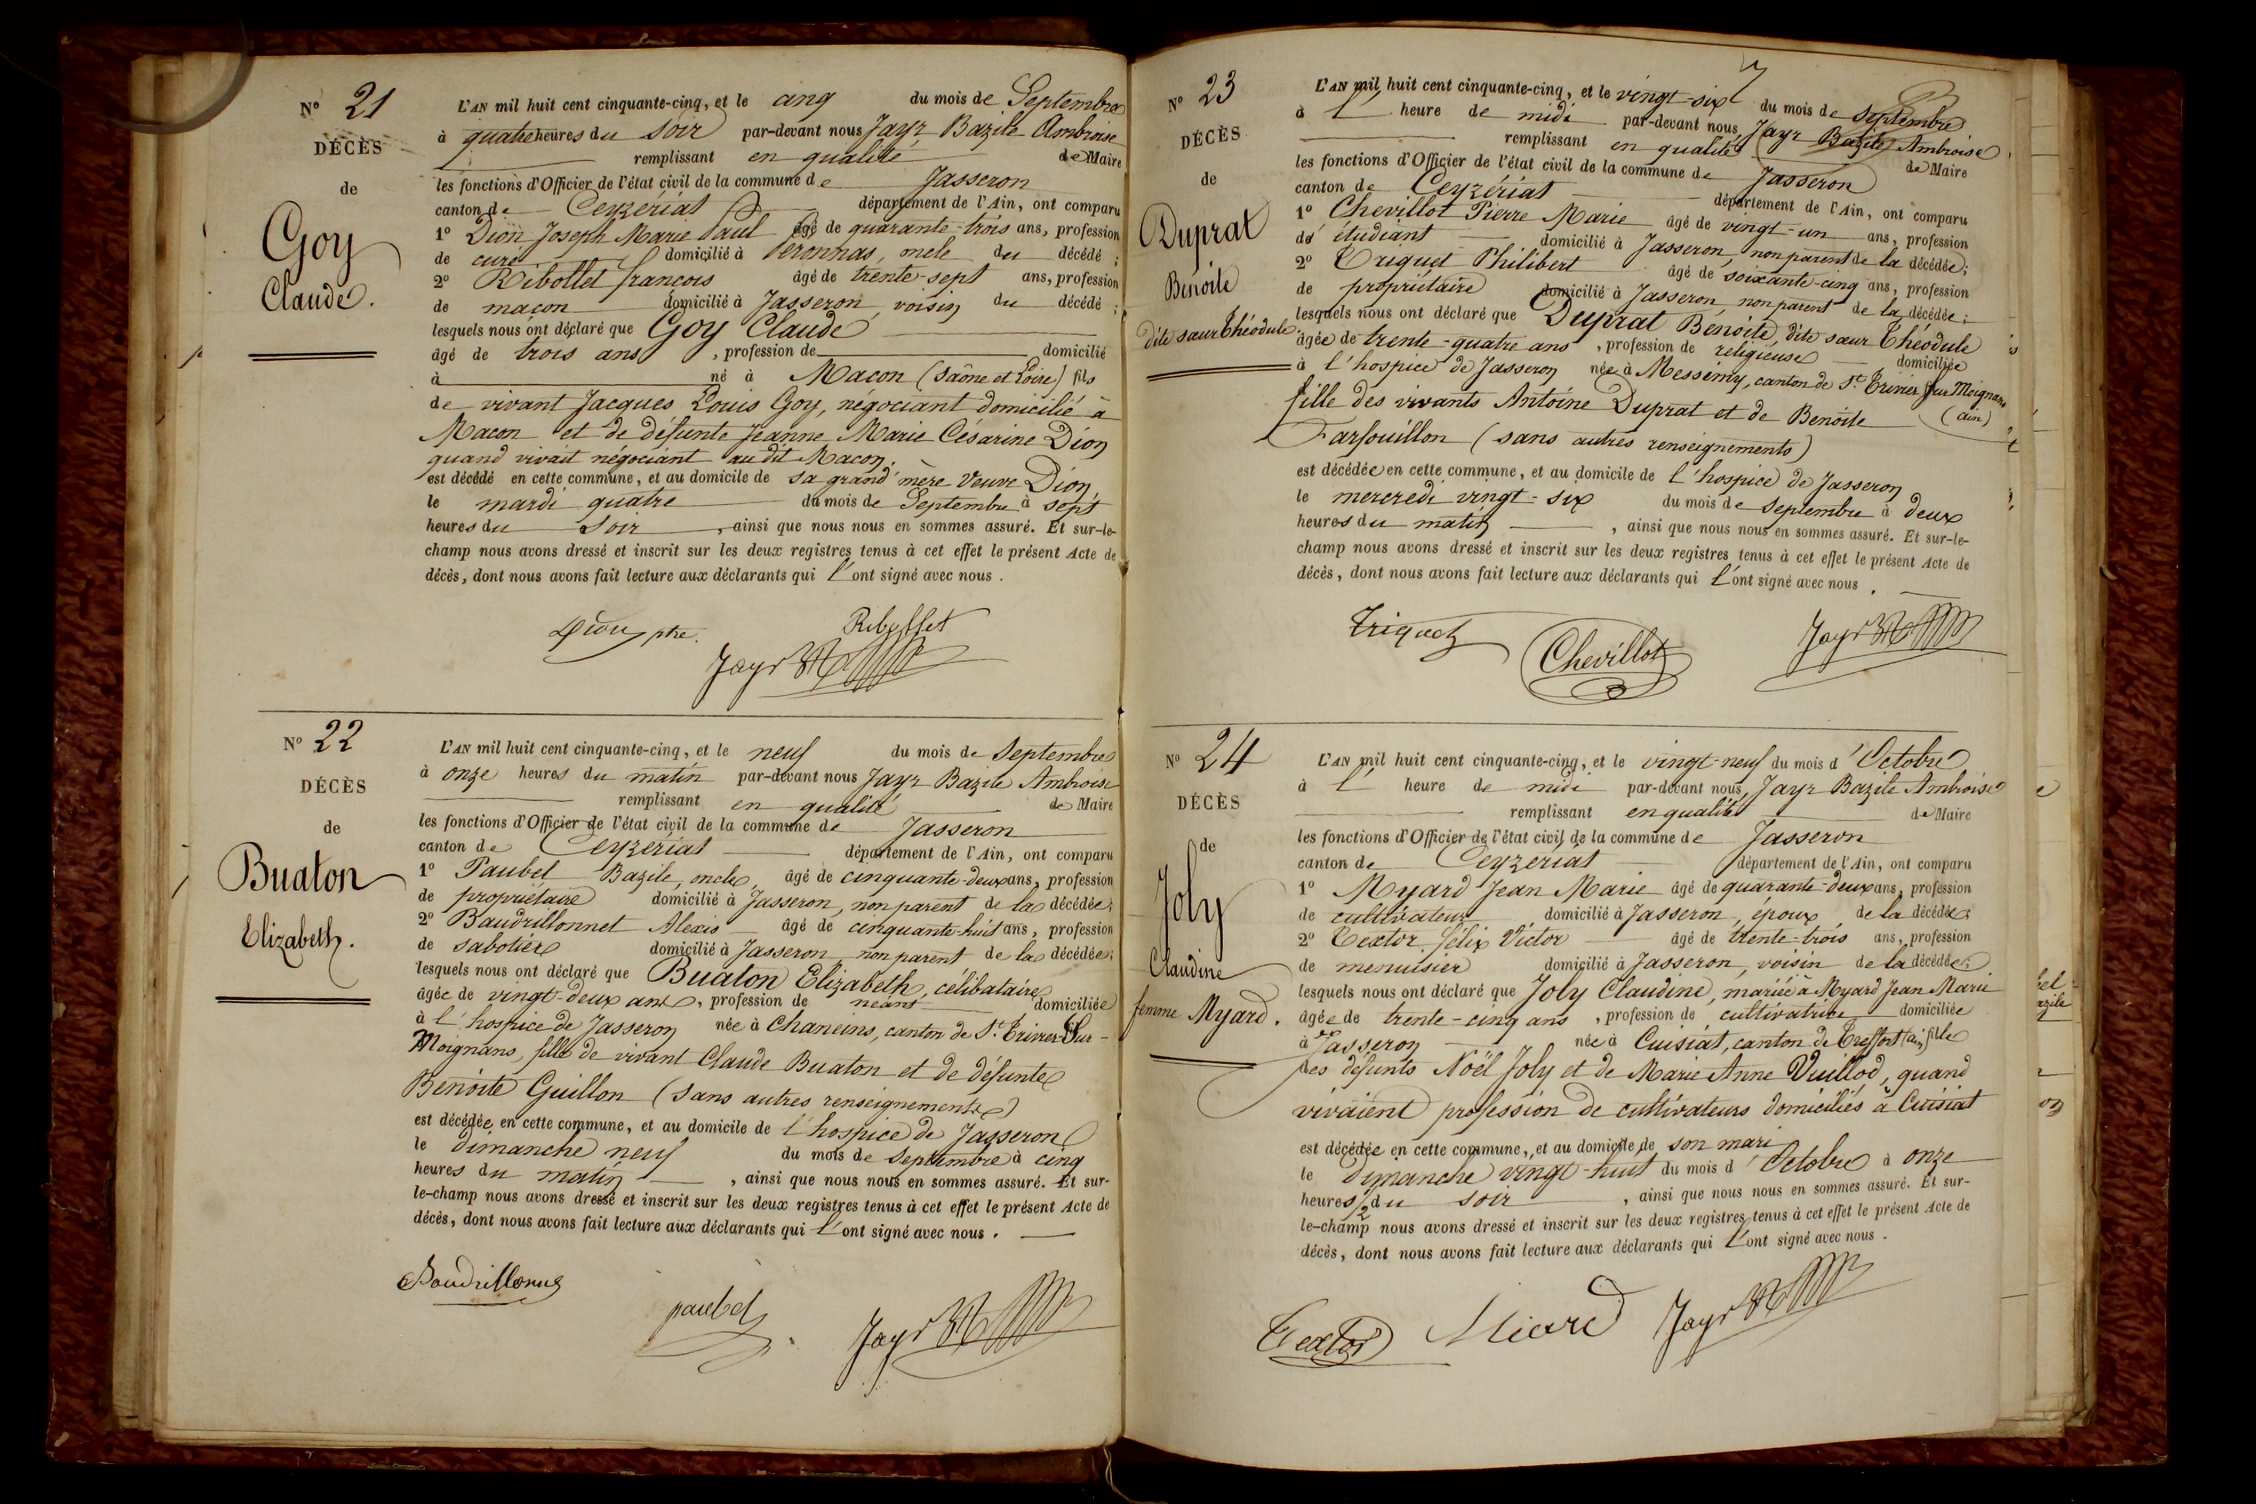 N° 21
DÉCÈS
de
Goy
Claude.
L'AN mil huit cent cinquante-cinq, et le cinq du mois de Septembre
à quatre heures du soir par-devant nous Jayr Bazile Ambroise
remplissant en qualité de Maire
les fonctions d'Officier de l'état civil de la commune de Jasseron
canton de Ceyzériat département de l'Ain, ont comparu
1° Dion Joseph Marie Paul âgé de quarante-trois ans, profession
de curé domicilié à Péronnas, oncle du décédé ;
2° Ribollet françois âgé de trente-sept ans, profession
de maçon domicilié à Jasseron, voisin du décédé ;
lesquels nous ont déclaré que Goy Claude
âgé de trois ans, profession de domicilié
à né à Macon (Saône et Loire) fils
de vivant Jacques Louis Goy, négociant domicilié à
Macon et de défunte Jeanne Marie Césarine Dion
quand vivait négociant au dit Macon.
est décédé en cette commune, et au domicile de sa grand'mère Veuve Dion,
le mardi quatre du mois de Septembre à sept
heures du soir, ainsi que nous nous en sommes assuré. Et sur-le-
champ nous avons dressé et inscrit sur les deux registres tenus à cet effet le présent Acte de
décès, dont nous avons fait lecture aux déclarants qui l'ont signé avec nous.
Dion ptre. Ribollet
Jayr
N° 22
DÉCÈS
de
Buaton
Elizabeth.
L'AN mil huit cent cinquante-cinq, et le neuf du mois de Septembre
à onze heures du matin par-devant nous Jayr Bazile Ambroise
remplissant en qualité de Maire
les fonctions d'Officier de l'état civil de la commune de Jasseron
canton de Ceyzériat département de l'Ain, ont comparu
1° Paubel Bazile, oncle, âgé de cinquante-deux ans, profession
de propriétaire domicilié à Jasseron, non parent de la décédée ;
2° Baudrillonnet Alexis âgé de cinquante-huit ans, profession
de sabotier domicilié à Jasseron non parent de la décédée ;
lesquels nous ont déclaré que Buaton Elizabeth, célibataire
âgée de vingt-deux ans, profession de néant domiciliée
à l'hospice de Jasseron née à Chaneins, canton de St Trivier-Sur-
Moignans, fille de vivant Claude Buaton et de défunte
Benoite Guillon (sans autres renseignements)
est décédée en cette commune, et au domicile de l'hospice de Jasseron
le dimanche neuf du mois de Septembre à cinq
heures du matin, ainsi que nous nous en sommes assuré. Et sur-
le-champ nous avons dressé et inscrit sur les deux registres tenus à cet effet le présent Acte de
décès, dont nous avons fait lecture aux déclarants qui l'ont signé avec nous.
paubel Jayr
N° 23
DÉCÈS
de
Duprat
Benoite
dite sœur Théodule.
L'AN mil huit cent cinquante-cinq, et le vingt-six du mois de Septembre
à l' heure de midi par-devant nous Jayr Bazile Ambroise
remplissant en qualité de Maire
les fonctions d'Officier de l'état civil de la commune de Jasseron
canton de Ceyzériat département de l'Ain, ont comparu
1° Chevillot Pierre Marie âgé de vingt-un ans, profession
d' étudiant domicilié à Jasseron, non parent de la décédée ;
2° Triquet Philibert âgé de soixante-cinq ans, profession
de propriétaire domicilié à Jasseron, non parent de la décédée ;
lesquels nous ont déclaré que Duprat Bénoite, dite sœur Théodule
âgée de trente-quatre ans, profession de religieuse domiciliée
à l'hospice de Jasseron née à Messimy, canton de St Trivier sur Moignans
(ain)
fille des vivants Antoine Duprat et de Benoite
Farfouillon (sans autres renseignements)
est décédée en cette commune, et au domicile de l'hospice de Jasseron
le mercredi vingt-six du mois de septembre à deux
heures du matin, ainsi que nous nous en sommes assuré. Et sur-le-
champ nous avons dressé et inscrit sur les deux registres tenus à cet effet le présent Acte de
décès, dont nous avons fait lecture aux déclarants qui l'ont signé avec nous.
Triquet Chevillot Jayr
N° 24
DÉCÈS
de
Joly
Claudine
femme Myard.
L'AN mil huit cent cinquante-cinq, et le vingt-neuf du mois d'Octobre
à l' heure de midi par-devant nous, Jayr Bazile Ambroise
remplissant en qualité de Maire
les fonctions d'Officier de l'état civil de la commune de Jasseron
canton de Ceyzériat département de l'Ain, ont comparu
1° Myard Jean Marie âgé de quarante-deux ans, profession
de cultivateur domicilié à Jasseron, époux de la décédée ;
2° Textor félix Victor âgé de trente-trois ans, profession
de menuisier domicilié à Jasseron, voisin de la décédée ;
lesquels nous ont déclaré que Joly Claudine, mariée à Myard Jean Marie
âgée de trente-cinq ans, profession de cultivatrice domiciliée
à Jasseron née à Cuisiat, canton de Treffort (ain) fille
des défunts Noël Joly et de Marie Anne Vuillod, quand
vivaient profession de cultivateurs domiciliés à Cuisiat
est décédée en cette commune, et au domicile de son mari
le dimanche vingt-huit du mois d'Octobre à onze
heures 1/2 du soir, ainsi que nous nous en sommes assuré. Et sur-
le-champ nous avons dressé et inscrit sur les deux registres tenus à cet effet le présent Acte de
décès, dont nous avons fait lecture aux déclarants qui l'ont signé avec nous.
Textor Miard Jayr